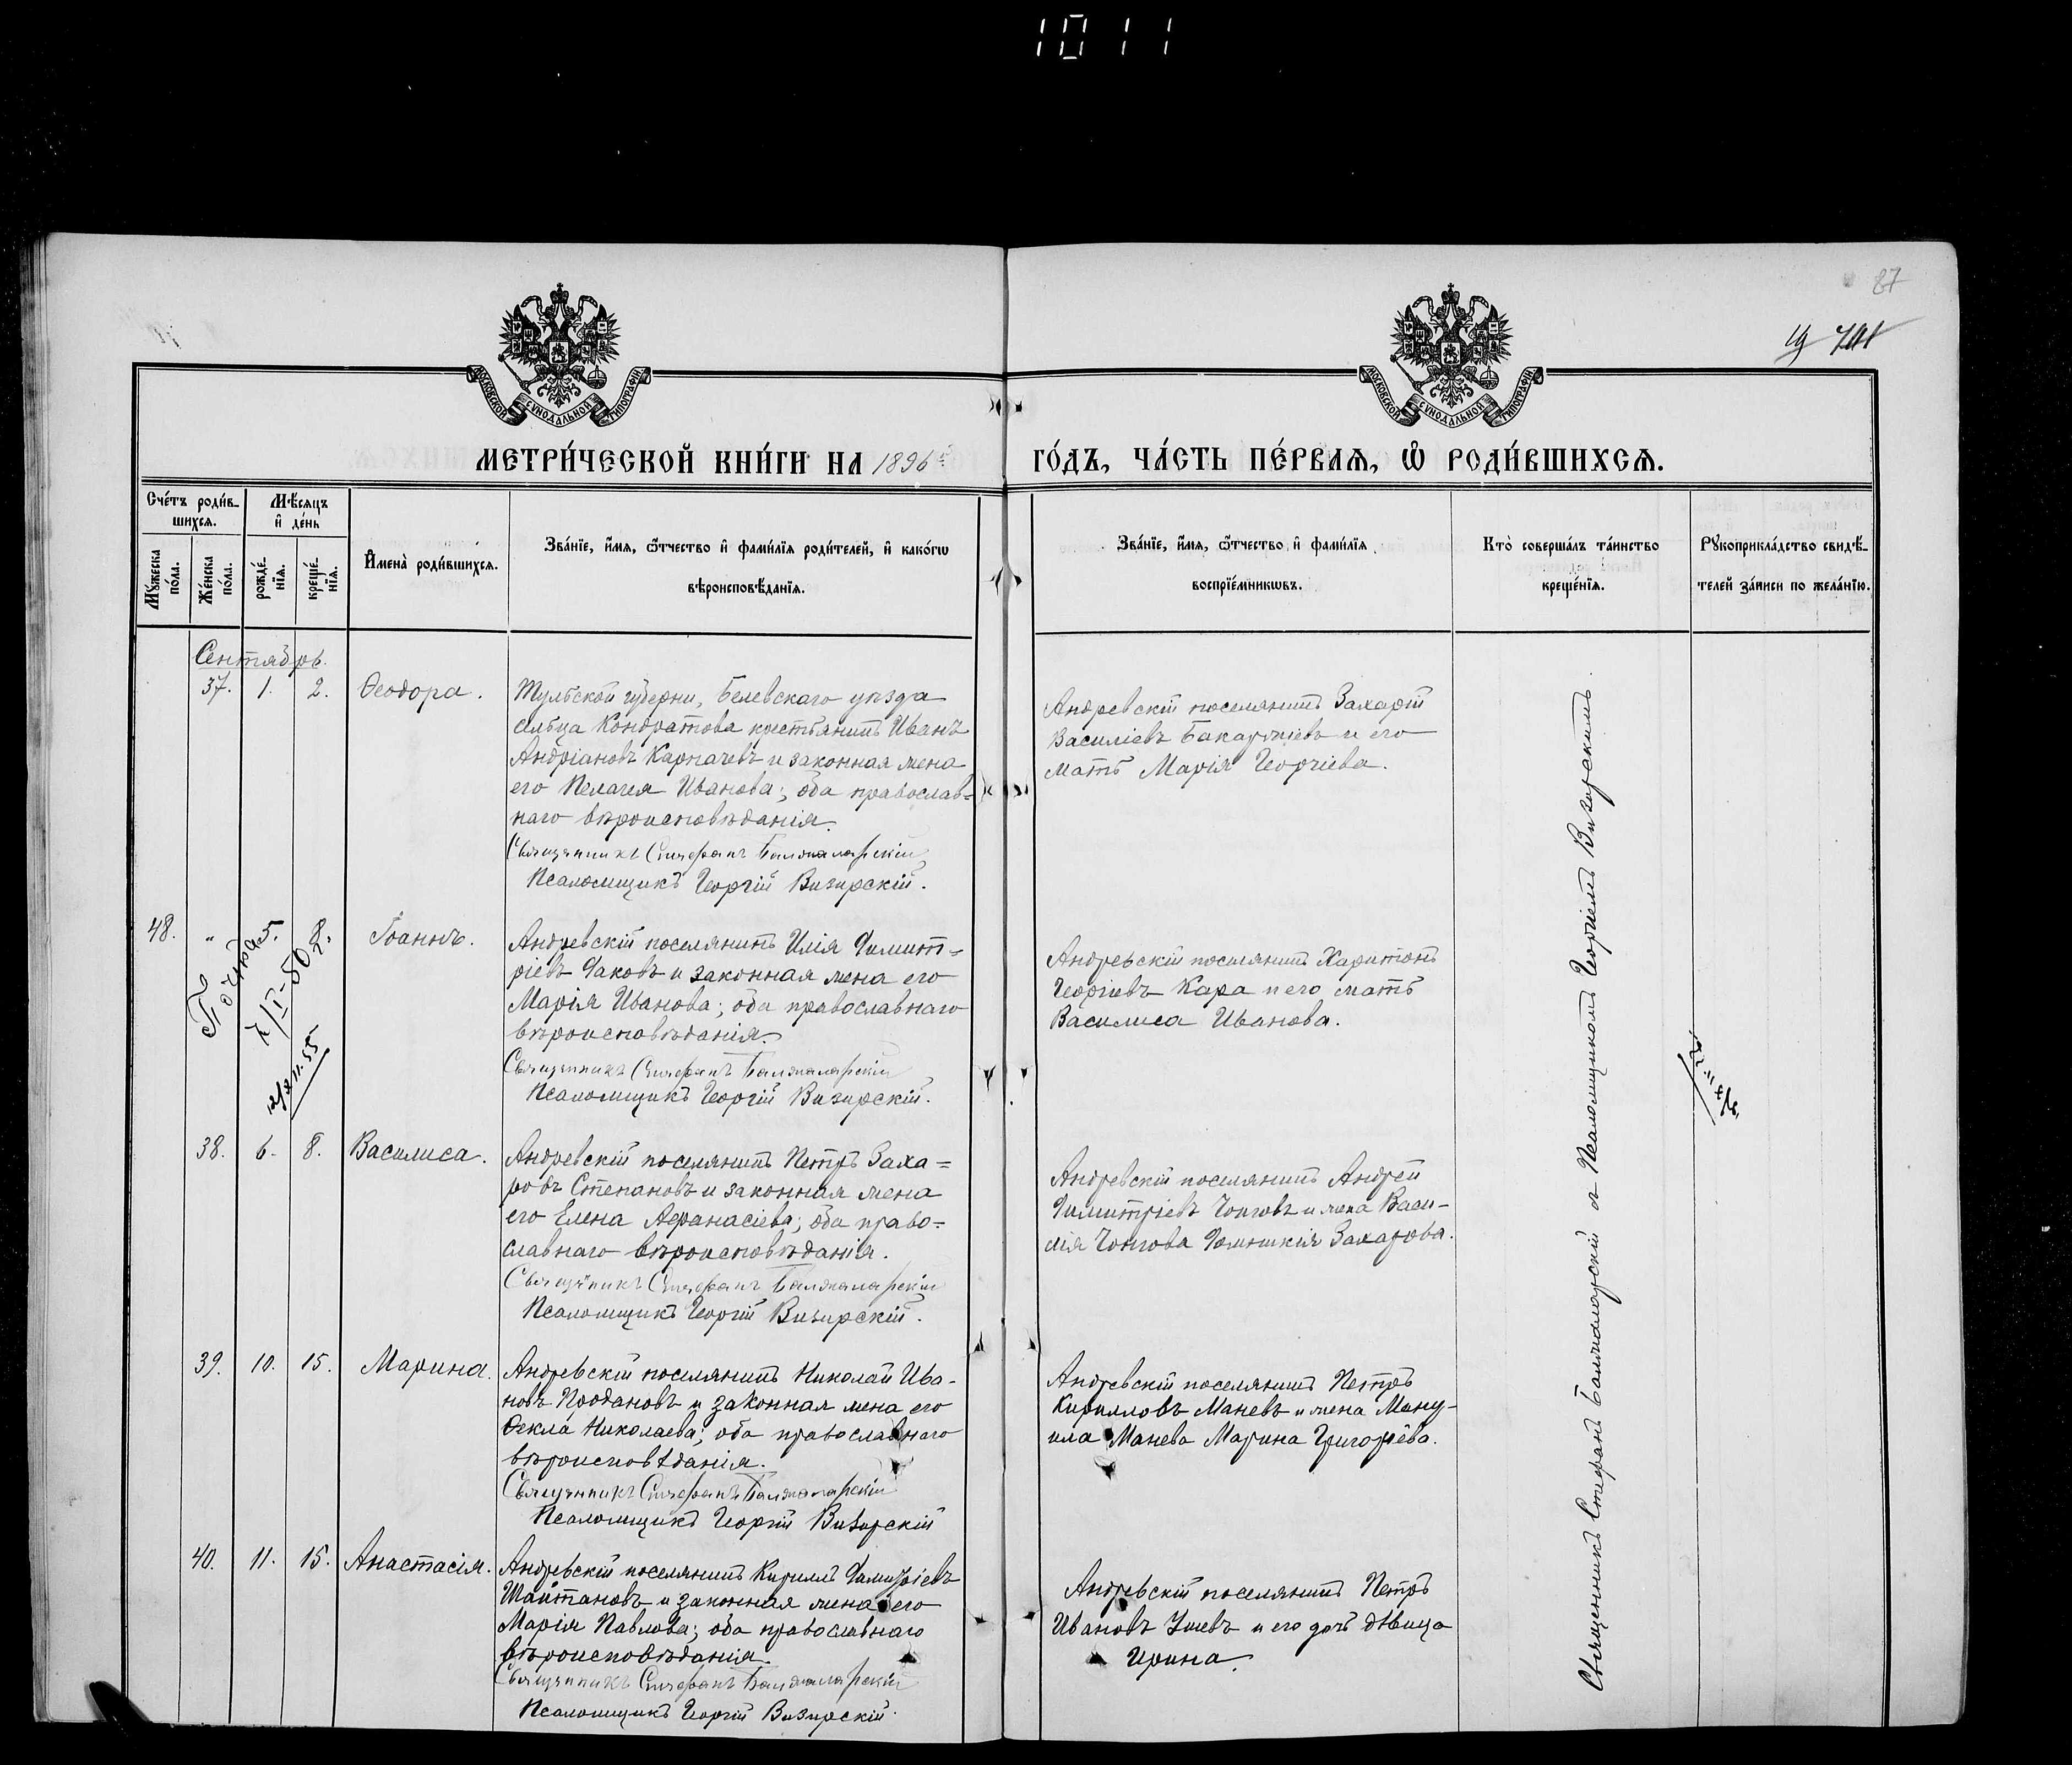 1011
87
МОСКОВСКОЙ СѴНОДАЛЬНОЙ ТИПОГРАФІИ
МОСКОВСКОЙ СѴНОДАЛЬНОЙ ТИПОГРАФІИ
МЕТРИ́ЧЕСКОЙ КНИ́ГИ НА 1896 ГО́ДЪ, ЧА́СТЬ ПЕ́РВАѦ, Ѡ РОДИ́ВШИХСѦ.
Сче́тъ роди́в-
шихсѧ.
Мꙋжеска по́ла.
Же́нска по́ла.
Мѣ́сѧцъ
и҆ де́нь
рожде́-
нїѧ.
креще́-
нїѧ.
И҆мена̀ роди́вшихсѧ.
Зва́нїе, и҆́мѧ, ѻ҆́тчество и҆ фами́лїѧ роди́телей, и҆ како́гѡ
вѣроисповѣ́данїѧ.
Зва́нїе, и҆́мѧ, ѻ҆́тчество и҆ фами́лїѧ
воспрїе́мникѡвъ.
Кто̀ соверша́лъ та́инство
креще́нїѧ.
Рꙋкоприкла́дство свидѣ́-
телей за́писи по жела́нїю.
Сентябрь.
37. 1. 2. Ѳеодора.
Тульской губерни, Белевскаго уѣзда
сельца Кондратова крестьянинъ Иванъ
Андріановъ Карпачевъ и законная жена
его Пелагея Иванова; оба православ-
наго вѣроисповѣданія.
Священникъ Стефанъ Балжаларскій
Псаломщикъ Георгій Визирскій.
Андревскій поселянинъ Захарій
Василіевъ и его
мать Марія Георгіева.
48. „ 5. 8. Іоаннъ.
Андревскій поселянинъ Илія Димит=
ріевъ Даковъ и законная жена его
Марія Иванова; оба православнаго
вѣроисповѣданія.
Священникъ Стефанъ Балжаларскій
Псаломщикъ Георгій Визирскій.
Андревскій поселянинъ Харитонъ
Георгіевъ Кара и его мать
Василиса Иванова.
38. 6. 8. Василиса.
Андревскій поселянинъ Петръ Заха=
ровъ Степановъ и законная жена
его Елена Афанасіева; оба право-
славнаго вѣроисповѣданія.
Священникъ Стефанъ Балжаларскій
Псаломщикъ Георгій Визирскій.
Андревскій поселянинъ Андрей
Димитріевъ и жена Васи-
лія Захарова.
39. 10. 15. Марина.
Андревскій поселянинъ Николай Ива-
новъ и законная жена его
Ѳекла Николаева; оба православнаго
вѣроисповѣданія.
Священникъ Стефанъ Балжаларскій
Псаломщикъ Георгій Визирскій
Андревскій поселянинъ Петръ
Кирилловъ Маневъ и жена Ману-
ила Манева Марина Григоріева.
40. 11. 15. Анастасія.
Андревскій поселянинъ Кириллъ Димитріевъ
Шайтановъ и законная жена его
Марія Павлова; оба православнаго
вѣроисповѣданія.
Священникъ Стефанъ Балжаларскій
Псаломщикъ Георгій Визирскій.
Андревскій поселянинъ Петръ
Ивановъ и его дочь дѣвица
Ирина.
Священникъ Стефанъ Балжаларскій съ Псаломщикомъ Георгіемъ Визирскимъ.